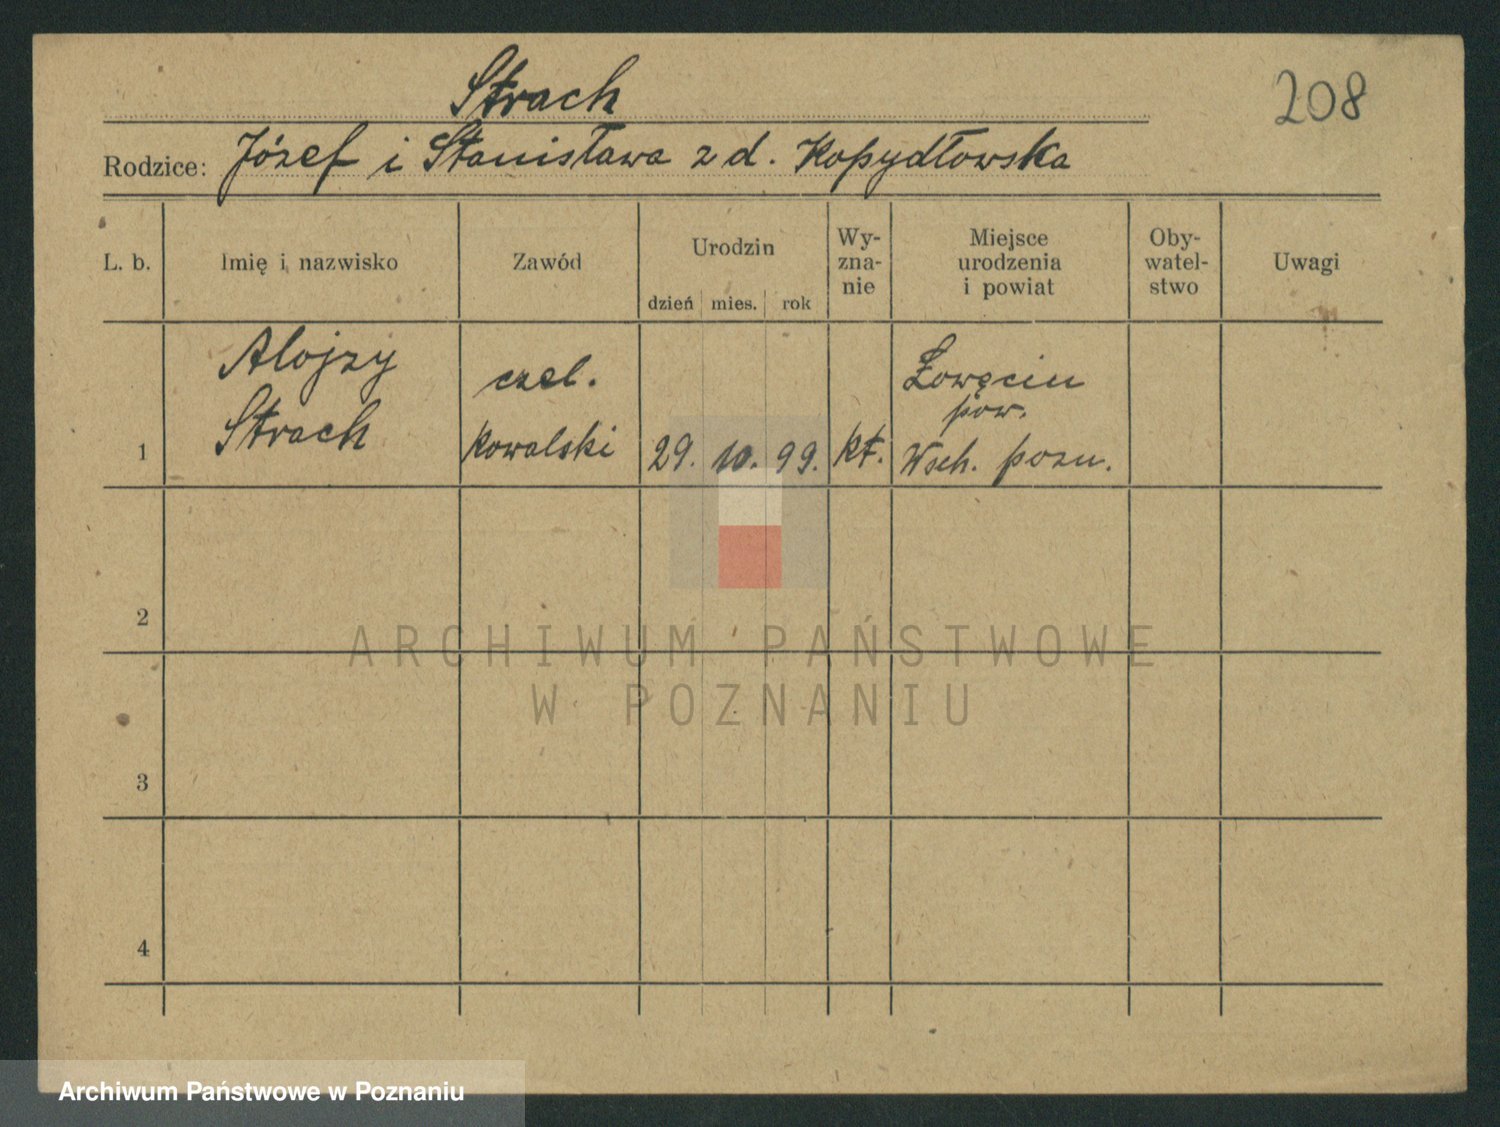 Strach
208
Rodzice: Józef i Stanisława z d. Kopydłowska
L. b.
Imię i nazwisko
Zawód
Urodzin
dzień mies. rok
Wy-
zna-
nie
Miejsce
urodzenia
i powiat
Oby-
watel-
stwo
Uwagi
1
Alojzy
Strach
czel.
kowalski
29. 10. 99.
kt.
Łowęcin
pow.
Wsch. pozn.
2
3
4
ARCHIWUM PAŃSTWOWE
W POZNANIU
Archiwum Państwowe w Poznaniu